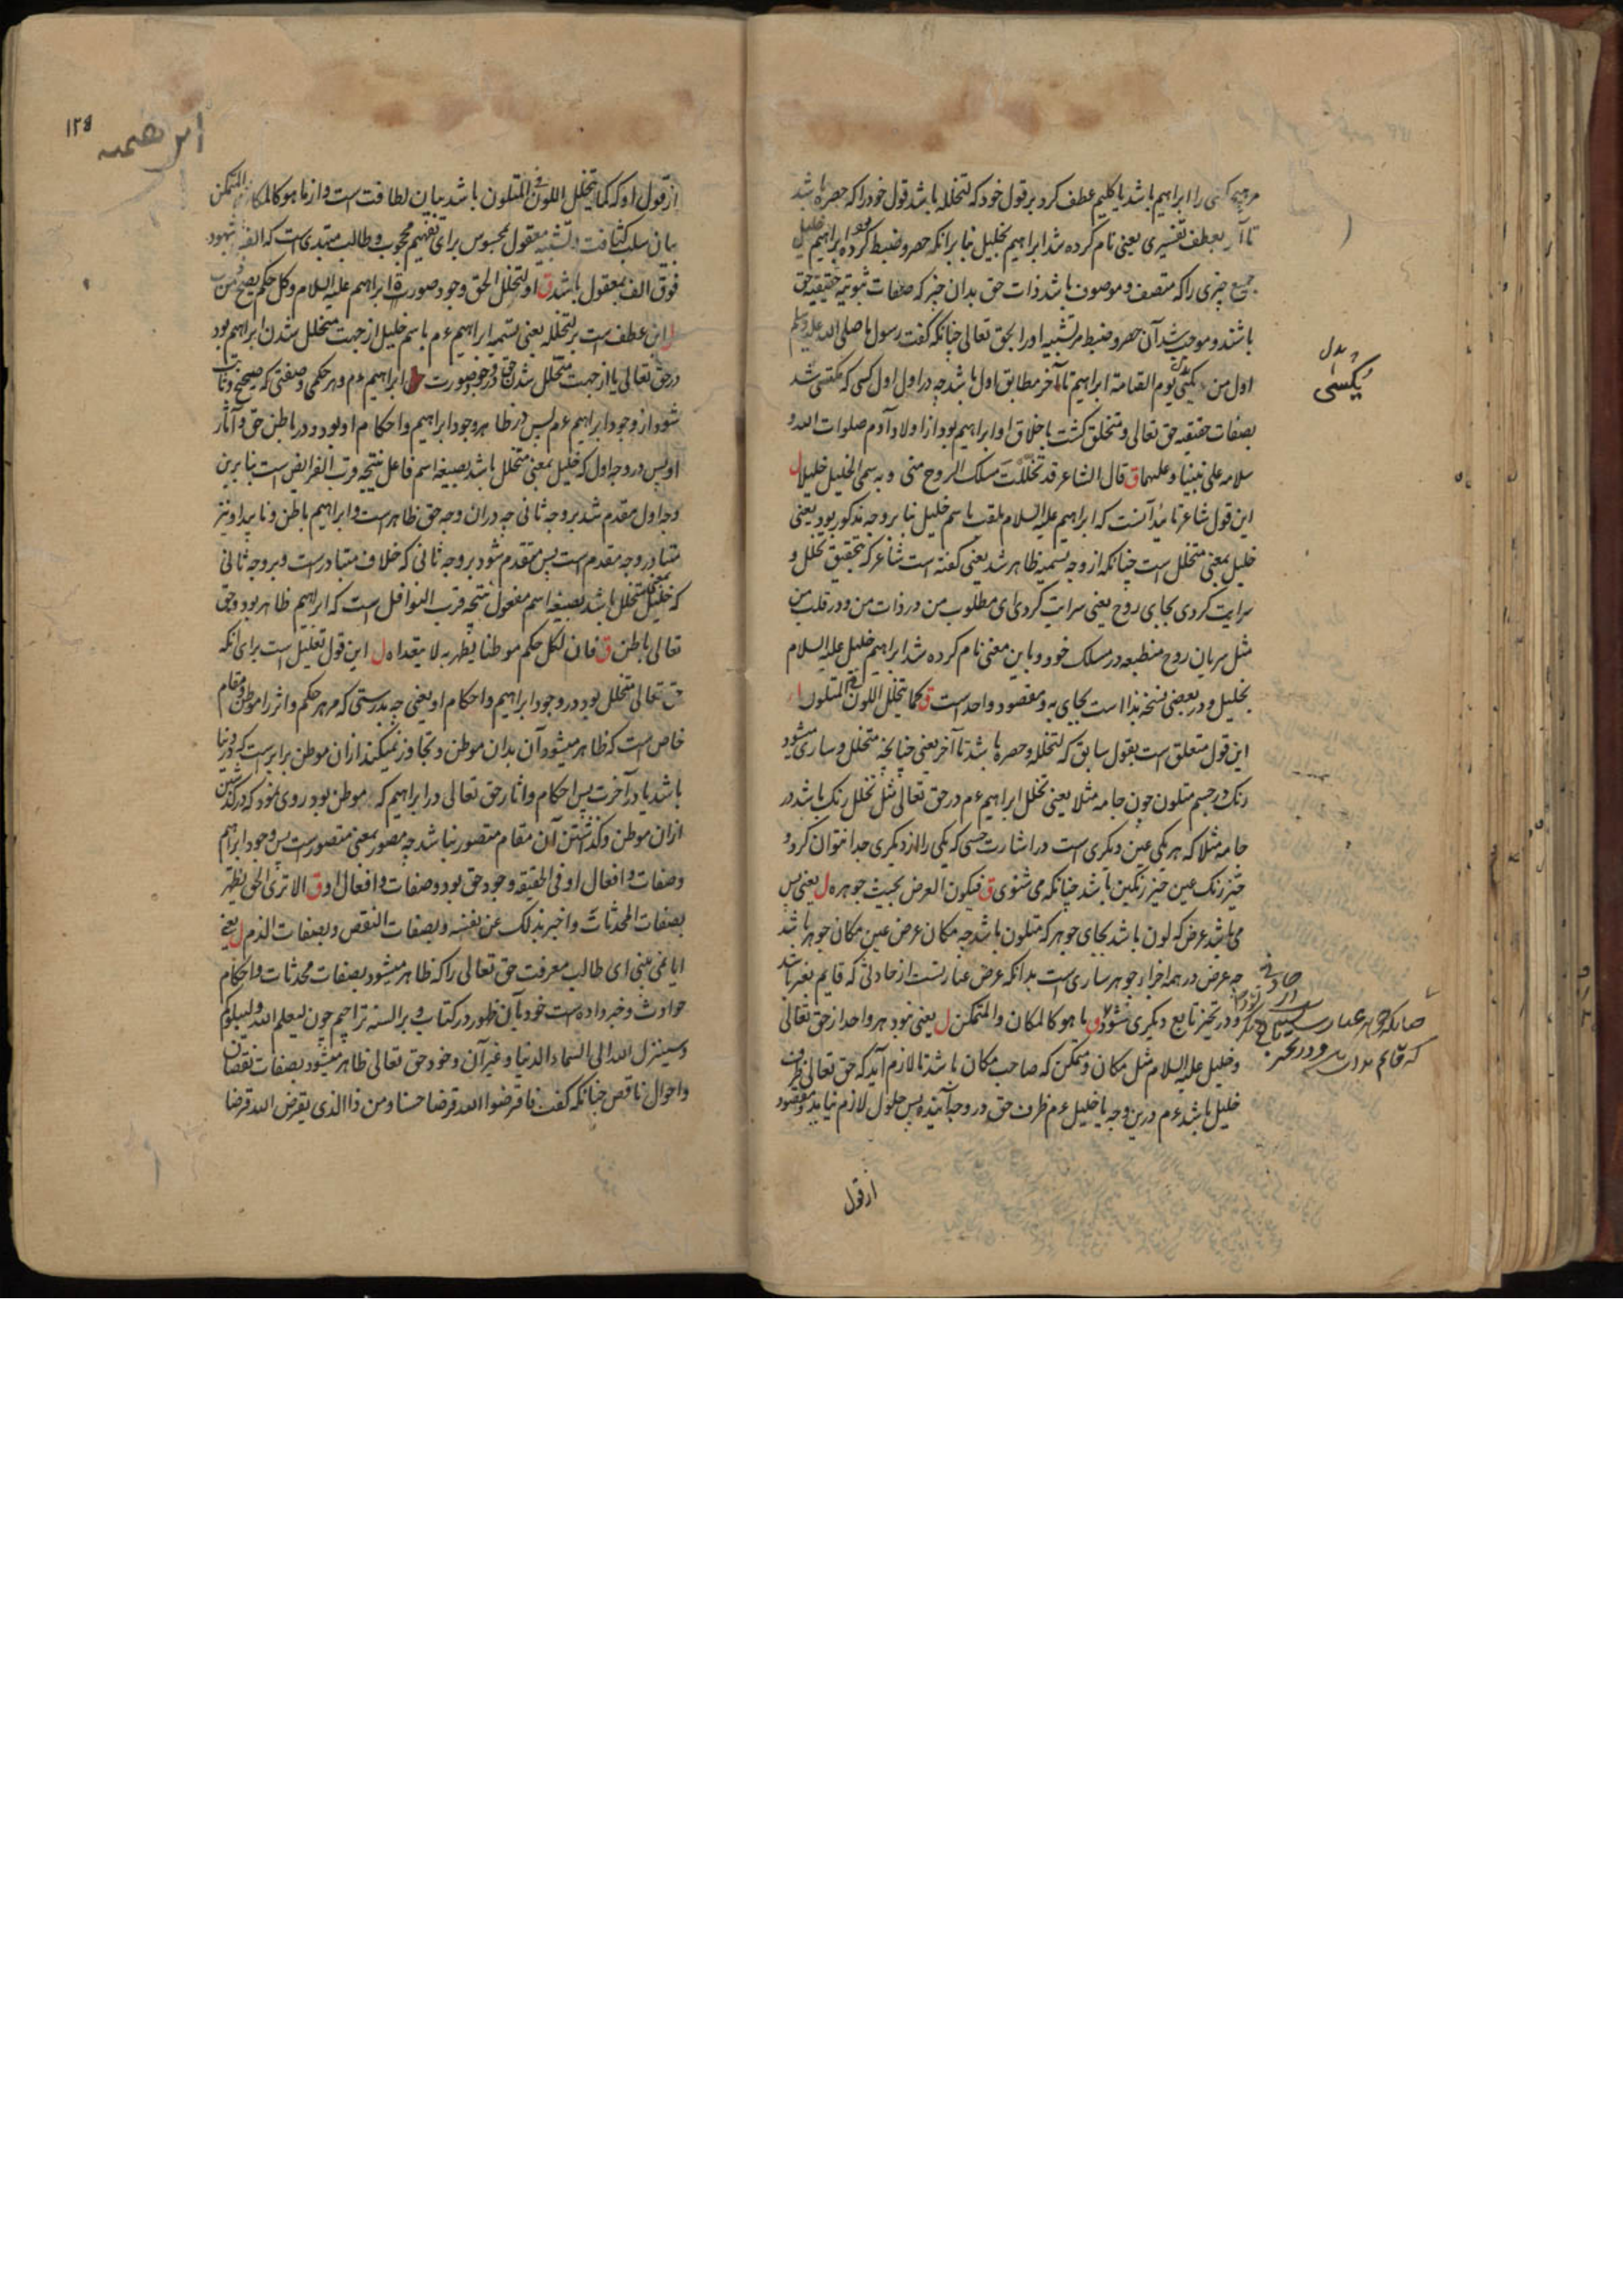 باشد یا کلیم عطف کرد بر قول خود که لتخلله باشد قول خود را که حصره باشد
بعطف تفسیری یعنی نام کرده شد ابراهیم بخلیل بنا برانکه حصر و ضبط کرده ابراهیم خلیل
جمیع چیزی را که متصف و موصوف باشد ذات حق بدان چیز که صفات ثبوتیه حقیقیه حق
باشند و موجب شد آن حصر و ضبط مر تشبیه او را بحق تعالی چنانکه گفت رسول ما صلی الله علیه وسلم
اول من یکسی یوم القیامة ابراهیم تا آخر مطابق اول باشد چه در اول اول کسی که مکتسی شد
بصفات حقیقیه حق تعالی و متخلق گشت باخلاق او ابراهیم بود از اولاد آدم صلوات الله و
سلامه علی نبینا و علیهما ق قال الشاعر قد تخللت مسلک الروح منی وبه سمی الخلیل خلیلا ل
این قول شاعر تائید آنست که ابراهیم علیه السلام ملقب باسم خلیل بنا بر وجه مذکور بود یعنی
خلیل بمعنی متخلل است چنانکه از وجه تسمیه ظاهر شد یعنی گفته است شاعر که بتحقیق تخلل و
سرایت کردی بجای روح یعنی سرایت کردی ای مطلوب من در ذات من و در قلب من
مثل سریان روح منطبعه در مسلک خود و باین معنی نام کرده شد ابراهیم خلیل علیه السلام
بخلیل و در بعضی نسخه بذا است بجای به و مقصود واحد است ق کما یتخلل اللون المتلون ل
این قول متعلق است بقول سابق که لتخلله و حصره باشد تا آخر یعنی چنانچه متخلل و ساری میشود
رنگ در جسم متلون چون جامه مثلا یعنی تخلل ابراهیم عم در حق تعالی مثل تخلل رنگ باشد در
جامه مثلا که هر یکی عین دیگری است در اشارت حسی که یکی را از دیگری جدا نتوان کرد و
حیز رنگ عین حیز رنگین باشد چنانکه می شنوی ق فیکون العرض بحیث جوهره ل یعنی پس
می باشد عرض که لون باشد بجای جوهر که متلون باشد چه مکان عرض عین مکان جوهر باشد
چه عرض در همه اجزاء جوهر ساری است بدانکه عرض عبارتست از حادثی که قایم بغیر باشد
و در تحیز تابع دیگری شود ق ما هو کالمکان والمتمکن ل یعنی نبود هر واحد از حق تعالی
و خلیل علیه السلام مثل مکان و متمکن که صاحب مکان باشد تا لازم آید که حق تعالی ظرف
خلیل باشد عم درین وجه یا خلیل عم ظرف حق در وجه آینده پس حلول لازم نیاید و مقصود
از قول
بدل
یکسی
۱۲۴
ابراهیمیه
از قول او که کما یتخلل اللون المتلون باشد بیان لطافت است و از ما هو کالمکان والمتمکن
بیان سلب کثافت و تشبیه معقول بمحسوس برای تفهیم محجوب و طالب مبتدی است که الفه شهود
فوق الف بمعقول باشد ق او لتخلل الحق وجود صورة ابراهیم علیه السلام وکل حکم یصح من
ل این عطف است بر لتخلله یعنی تسمیه ابراهیم عم باسم خلیل از جهت متخلل شدن ابراهیم بود
در حق تعالی یا از جهت متخلل شدن حق در وجود صورت ابراهیم عم و هر حکمی و صفتی که صحیح و ثابت
شود از وجود ابراهیم عم پس در ظاهر وجود ابراهیم و احکام او بود و در باطن حق و آثار
او پس در وجه اول که خلیل بمعنی متخلل باشد بصیغه اسم فاعل نتیجه قرب الفرایض است بنا برین
وجه اول مقدم شد بر وجه ثانی چه دران وجه حق ظاهر است و ابراهیم باطن
متبادر وجه مقدم است پس مقدم شود بر وجه ثانی که خلاف متبادر است و بر وجه ثانی
که خلیل بمعنی متخلل باشد بصیغه اسم مفعول نتیجه قرب النوافل است که ابراهیم ظاهر بود و حق
تعالی باطن ق فان لکل حکم موطنا یظهر به لا یتعداه ل این قول تعلیل است برای آنکه
حق تعالی متخلل بود در وجود ابراهیم و احکام او یعنی چه بدرستی که مر هر حکم و اثر را موطن و مقام
خاص است که ظاهر میشود آن بدان موطن و تجاوز نمیکند ازان موطن برابر است که در دنیا
باشد یا در آخرت پس احکام و اثار حق تعالی در ابراهیم که موطن بود روی نمود که درگذشتن
ازان موطن و گذاشتن آن مقام متصور نباشد چه مصور بمعنی متصور است پس وجود ابراهیم
و صفات و افعال او فی الحقیقه وجود حق بود و صفات و افعال او ق الا تری الحق یظهر
بصفات المحدثات واخبر بذلک عن نفسه وبصفات النقص وبصفات الذم ل یعنی
ایا نمی بینی ای طالب معرفت حق تعالی را که ظاهر میشود بصفات محدثات و احکام
حوادث و خبر داده است خود بآن ظهور در کتاب و بر السنه تراجم چون لیعلم الله و لیبلوکم
و سینزل الله الی السماء الدنیا و غیر آن و خود حق تعالی ظاهر میشود بصفات نقصان
و احوال ناقص چنانکه گفت فاقرضوا الله قرضا حسنا و من ذا الذی یقرض الله قرضا